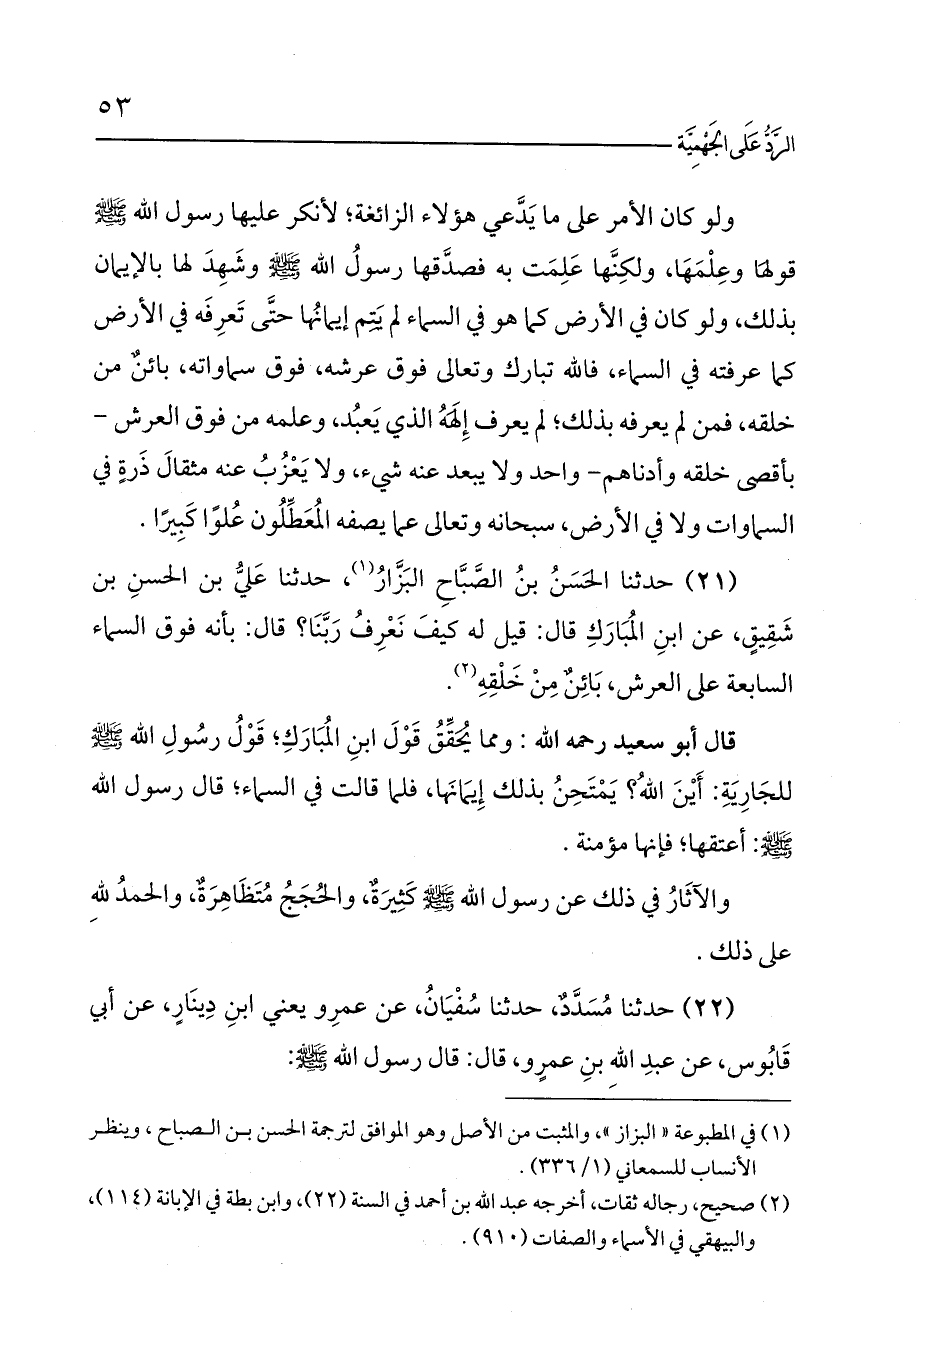 ٥٣
الرَّدُّ عَلَى الجَهْمِيَّة
ولو كان الأمر على ما يَدَّعي هؤلاء الزائغة؛ لأنكر عليها رسول الله ﷺ
قولهَا وعِلْمَهَا، ولكِنَّها عَلِمَت به فصدَّقها رسولُ الله ﷺ وشَهِدَ لها بالإيمان
بذلك، ولو كان في الأرض كما هو في السماء لم يَتِم إيمانُها حتَّى تَعرِفَه في الأرض
كما عرفته في السماء، فالله تبارك وتعالى فوق عرشه، فوق سماواته، بائنٌ من
خلقه، فمن لم يعرفه بذلك؛ لم يعرف إِلَهَهُ الذي يَعبُد، وعلمه من فوق العرش –
بأقصى خلقه وأدناهم– واحد ولا يبعد عنه شيء، ولا يَعْزُبُ عنه مثقالَ ذَرةٍ في
السماوات ولا في الأرض، سبحانه وتعالى عما يصفه المُعَطِّلُون عُلوًا كَبِيرًا .
(٢١) حدثنا الحَسَنُ بنُ الصَّبَّاحِ البَزَّارُ(١)، حدثنا عَليُّ بن الحسنِ بن
شَقِيقٍ، عن ابنِ المُبَارَكِ قال: قيل له كيفَ نَعْرِفُ رَبَّنَا؟ قال: بأنه فوق السماء
السابعة على العرش، بَائِنٌ مِنْ خَلْقِهِ(٢).
قال أبو سعيد رحمه الله : ومما يُحَقِّقُ قَوْلَ ابنِ المُبَارَكِ؛ قَوْلُ رسُولِ الله ﷺ
للجَارِيَةِ: أَيْنَ اللهُ؟ يَمْتَحِنُ بذلك إِيمَانَها، فلما قالت في السماء؛ قال رسول الله
ﷺ: أعتقها؛ فإنها مؤمنة .
والآثَارُ في ذلك عن رسول الله ﷺ كَثِيرَةٌ، والحُجَجُ مُتَظَاهِرَةٌ، والحمدُ للهِ
على ذلك .
(٢٢) حدثنا مُسَدَّدٌ، حدثنا سُفْيَانُ، عن عمرِو يعني ابنِ دِينَارٍ، عن أبي
قَابُوس، عن عبدِ اللهِ بنِ عمرٍو، قال: قال رسول الله ﷺ:
(١) في المطبوعة « البزاز »، والمثبت من الأصل وهو الموافق لترجمة الحسن بن الصباح ، وينظر
الأنساب للسمعاني (١/ ٣٣٦) .
(٢) صحيح، رجاله ثقات، أخرجه عبد الله بن أحمد في السنة (٢٢)، وابن بطة في الإبانة (١١٤)،
والبيهقي في الأسماء والصفات (٩١٠) .